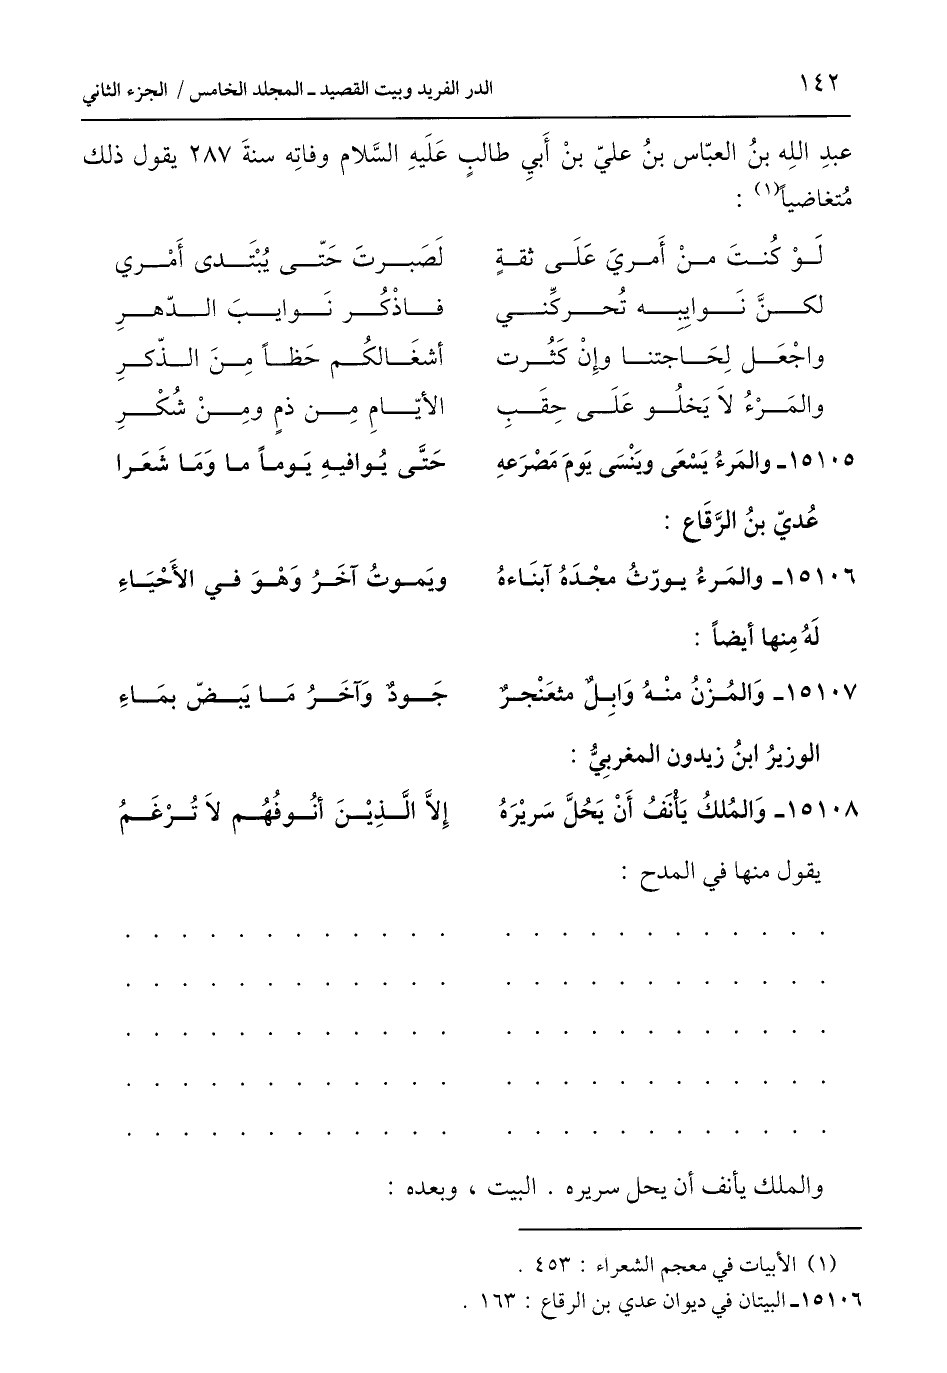 ١٤٢ الدر الفريد وبيت القصيد ـ المجلد الخامس / الجزء الثاني
عبدِ اللهِ بنُ العبّاس بنُ عليّ بنْ أَبي طالبٍ عَلَيهِ السَّلام وفاتِه سنةَ ٢٨٧ يقول ذلك
مُتغاضياً(١) :
لَوْ كُنتَ منْ أَمريَ عَلَى ثقةٍ لَصَبرتَ حَتّى يُبْتَدى أَمْري
لكنَّ نَوايِبِه تُحركّني فاذْكُر نَوايبَ الدّهرِ
واجْعَل لِحَاجتنا وإِنْ كَثُرت أشغَالكُم حَظاً مِنَ الذّكرِ
والمَرْءُ لاَ يَخلُو عَلَى حِقَبِ الأيّامِ مِن ذمٍ ومِنْ شُكْرِ
١٥١٠٥ـ والمَرءُ يَسْعَى ويَنْسَى يَومَ مَصْرَعهِ حَتَّى يُوافيهِ يَوماً ما وَمَا شَعَرا
عُديّ بنُ الرَّقَاع :
١٥١٠٦ـ والمَرءُ يورّثُ مجْدَهُ آبنَاءهُ ويَموتُ آخَرُ وَهْوَ في الأَحْيَاءِ
لَهُ مِنها أيضاً :
١٥١٠٧ـ وَالمُزْنُ منْهُ وَابِلٌ مثعَنْجرٌ جَودٌ وَآخَرُ مَا يَبَضّ بمَاءِ
الوزيرُ ابنُ زيدون المغربِيُّ :
١٥١٠٨ـ وَالمُلكُ يَأْنَفُ أَنْ يَحُلَّ سَريْرَهُ إِلاَّ الَّذِيْنَ أنُوفُهُم لاَ تُرْغَمُ
يقول منها في المدح :
. . . . . . . . . . . . . . . . . . . . . . . .
. . . . . . . . . . . . . . . . . . . . . . . .
. . . . . . . . . . . . . . . . . . . . . . . .
. . . . . . . . . . . . . . . . . . . . . . . .
. . . . . . . . . . . . . . . . . . . . . . . .
والملك يأنف أن يحل سريره . البيت ، وبعده :
(١) الأبيات في معجم الشعراء : ٤٥٣ .
١٥١٠٦ـ البيتان في ديوان عدي بن الرقاع : ١٦٣ .